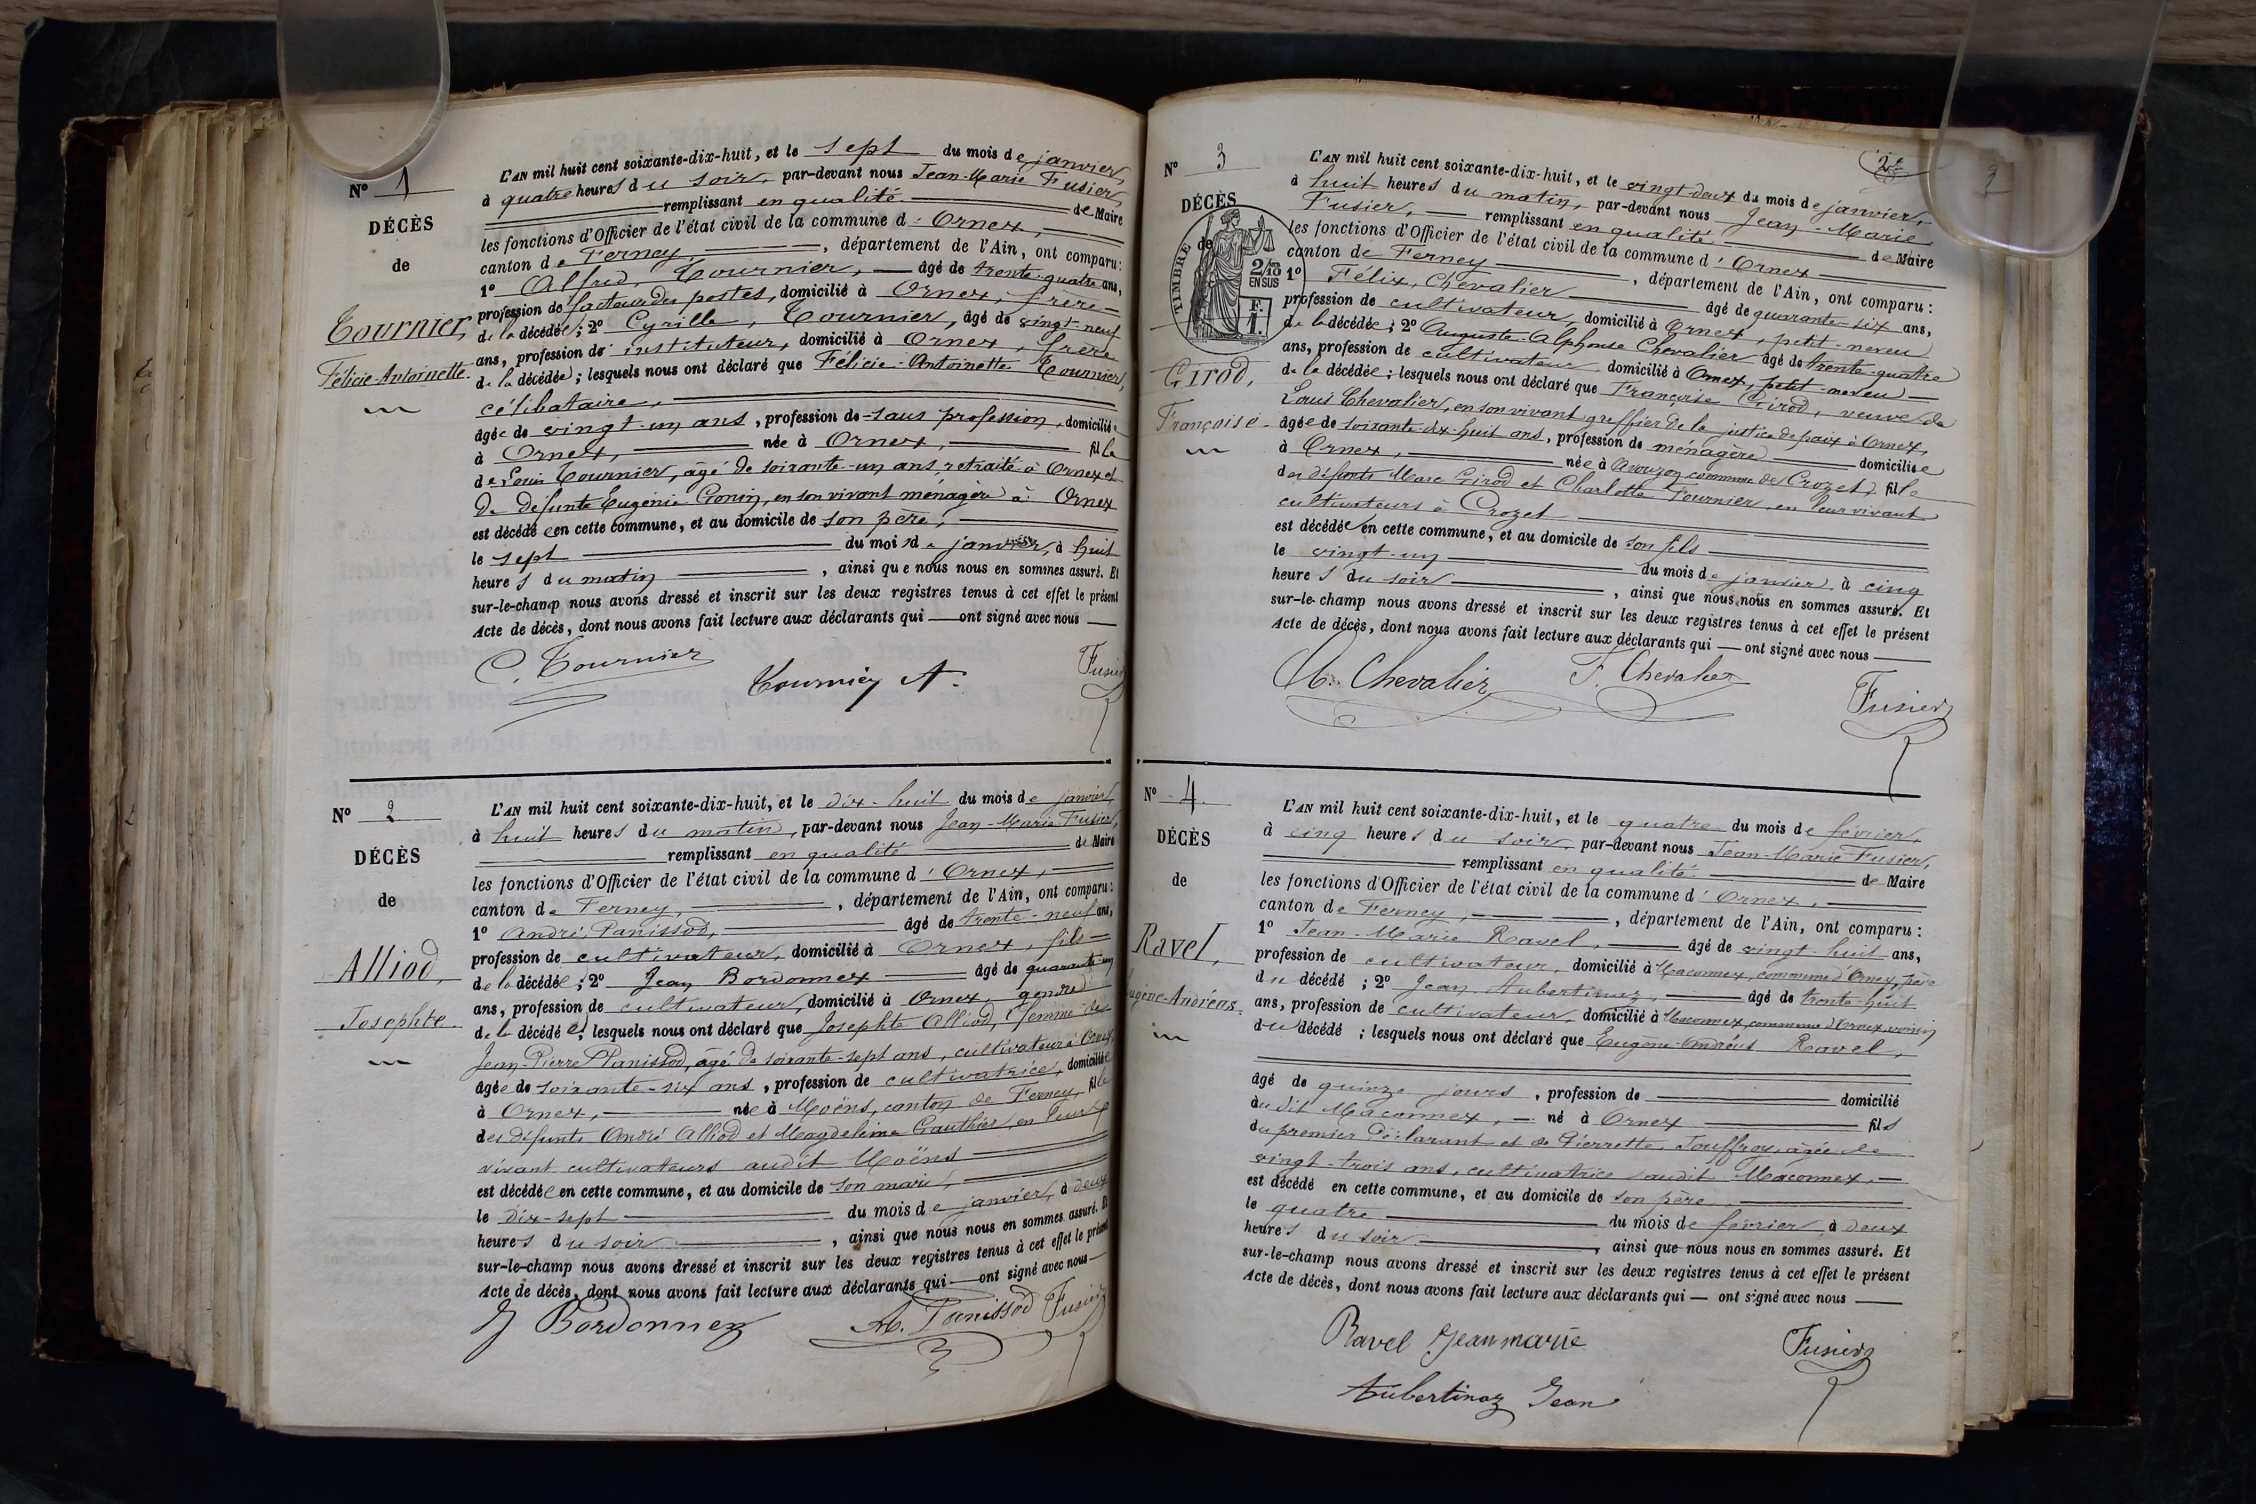 N° 1
DÉCÈS
de
Tournier,
Félicie-Antoinette.
L'AN mil huit cent soixante-dix-huit, et le sept du mois de janvier,
à quatre heures du soir, par-devant nous Jean-Marie Fusier,
remplissant en qualité de Maire
les fonctions d'Officier de l'état civil de la commune d'Ornex,
canton de Ferney, département de l'Ain, ont comparu:
1° Alfred, Tournier, âgé de trente-quatre ans,
profession de facteur des postes, domicilié à Ornex, frère
de la décédée; 2° Cyrille, Tournier, âgé de vingt-neuf
ans, profession de instituteur, domicilié à Ornex, frère
de la décédée; lesquels nous ont déclaré que Félicie-Antoinette Tournier,
célibataire,
âgée de vingt-un ans, profession de sans profession, domiciliée
à Ornex, née à Ornex, fille
de Louis Tournier, âgé de soixante-un ans, retraité à Ornex et
de défunte Eugénie Gonin, en son vivant ménagère à Ornex
est décédée en cette commune, et au domicile de son père,
le sept du mois de janvier, à huit
heures du matin, ainsi que nous nous en sommes assuré. Et
sur-le-champ nous avons dressé et inscrit sur les deux registres tenus à cet effet le présent
Acte de décès, dont nous avons fait lecture aux déclarants qui ont signé avec nous
C. Tournier
Tournier A.
Fusier
N° 2
DÉCÈS
de
Alliod,
Josephte
L'AN mil huit cent soixante-dix-huit, et le dix-huit du mois de janvier,
à huit heures du matin, par-devant nous Jean-Marie Fusier,
remplissant en qualité de Maire
les fonctions d'Officier de l'état civil de la commune d'Ornex,
canton de Ferney, département de l'Ain, ont comparu:
1° André Panissod, âgé de trente-neuf ans,
profession de cultivateur, domicilié à Ornex, fils
de la décédée; 2° Jean Bordonnex âgé de quarante-un
ans, profession de cultivateur, domicilié à Ornex, gendre
de la décédée, lesquels nous ont déclaré que Josephte Alliod, femme de
Jean-Pierre Panissod, âgé de soixante-sept ans, cultivateur à Ornex,
âgée de soixante-six ans, profession de cultivatrice, domiciliée
à Ornex, née à Moëns, canton de Ferney, fille
des défunts André Alliod et Magdeleine Gauthier, en leur
vivant cultivateurs audit Moëns
est décédée en cette commune, et au domicile de son mari,
le dix-sept du mois de janvier, à deux
heures du soir, ainsi que nous nous en sommes assuré. Et
sur-le-champ nous avons dressé et inscrit sur les deux registres tenus à cet effet le présent
Acte de décès, dont nous avons fait lecture aux déclarants qui ont signé avec nous
J Bordonnex
A. Panissod
Fusier
2e
2
N° 3
DÉCÈS
de
TIMBRE
2/10
EN SUS
F.
1.
Girod,
Françoise
L'AN mil huit cent soixante-dix-huit, et le vingt-deux du mois de janvier,
à huit heures du matin, par-devant nous Jean-Marie
Fusier, remplissant en qualité de Maire
les fonctions d'Officier de l'état civil de la commune d'Ornex
canton de Ferney, département de l'Ain, ont comparu:
1° Félix, Chevalier âgé de quarante-six ans,
profession de cultivateur, domicilié à Ornex, petit-neveu
de la décédée; 2° Auguste-Alphonse Chevalier âgé de trente-quatre
ans, profession de cultivateur domicilié à Ornex, petit-neveu
de la décédée; lesquels nous ont déclaré que Françoise Girod, veuve de
Louis Chevalier, en son vivant greffier de la justice de paix à Ornex,
âgée de soixante-dix-huit ans, profession de ménagère domiciliée
à Ornex, née à Avouzon commune de Crozet, fille
des défunts Marc Girod et Charlotte Fournier, en leur vivant
cultivateurs à Crozet
est décédée en cette commune, et au domicile de son fils
le vingt-un du mois de janvier à cinq
heures du soir, ainsi que nous nous en sommes assuré. Et
sur-le-champ nous avons dressé et inscrit sur les deux registres tenus à cet effet le présent
Acte de décès, dont nous avons fait lecture aux déclarants qui ont signé avec nous
A. Chevalier
F. Chevalier
Fusier
N° 4
DÉCÈS
de
Ravel,
Eugène-Andréas
L'AN mil huit cent soixante-dix-huit, et le quatre du mois de février,
à cinq heures du soir, par-devant nous Jean-Marie Fusier,
remplissant en qualité de Maire
les fonctions d'Officier de l'état civil de la commune d'Ornex,
canton de Ferney, département de l'Ain, ont comparu:
1° Jean-Marie Ravel, âgé de vingt-huit ans,
profession de cultivateur, domicilié à Maconnex, commune d'Ornex, père
du décédé; 2° Jean Aubertinaz, âgé de trente-huit
ans, profession de cultivateur, domicilié à Maconnex, commune d'Ornex, voisin
du décédé; lesquels nous ont déclaré que Eugène-Andréas Ravel,
âgé de quinze jours, profession de domicilié
audit Maconnex, né à Ornex fils
du premier déclarant et de Pierrette Jouffroy, âgée de
vingt-trois ans, cultivatrice audit Maconnex,
est décédé en cette commune, et au domicile de son père
le quatre du mois de février à deux
heures du soir, ainsi que nous nous en sommes assuré. Et
sur-le-champ nous avons dressé et inscrit sur les deux registres tenus à cet effet le présent
Acte de décès, dont nous avons fait lecture aux déclarants qui ont signé avec nous
Ravel Jean marie
Fusier
Aubertinaz Jean